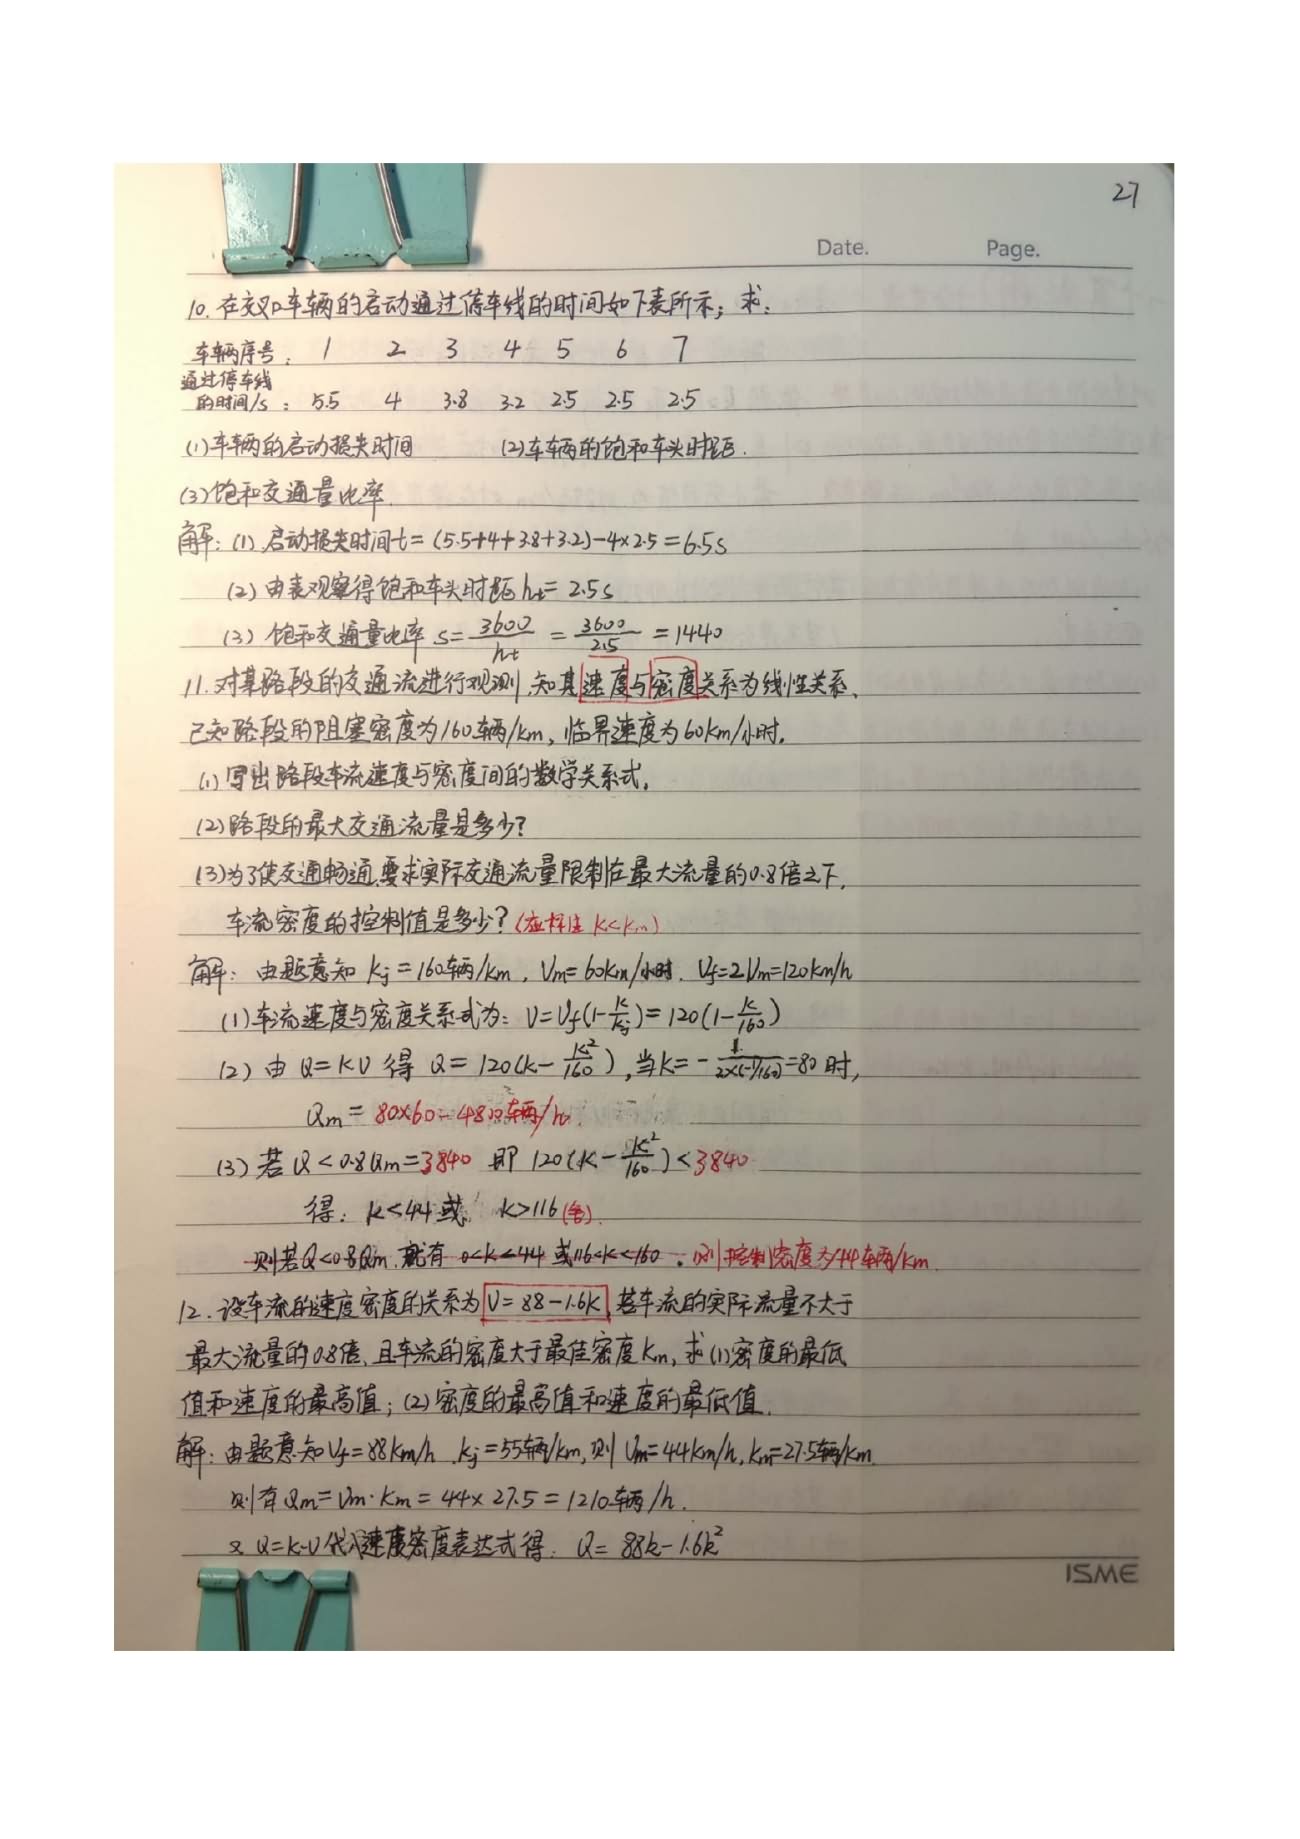 27
Date. Page.
10. 在交叉口车辆的启动通过停车线的时间如下表所示；求：
车辆序号： 1 2 3 4 5 6 7
通过停车线
的时间/s： 5.5 4 3.8 3.2 2.5 2.5 2.5
(1)车辆的启动损失时间 (2)车辆的饱和车头时距.
(3)饱和交通量比率.
解：(1) 启动损失时间 t = (5.5+4+3.8+3.2)-4×2.5=6.5s
(2) 由表观察得饱和车头时距 ht= 2.5s
(3) 饱和交通量比率 s= 3600/ht = 3600/2.5 = 1440
11. 对某路段的交通流进行观测，知其速度与密度关系为线性关系，
已知路段的阻塞密度为160辆/km，临界速度为60km/小时.
(1) 写出路段车流速度与密度间的数学关系式，
(2)路段的最大交通流量是多少？
(3)为了使交通畅通，要求实际交通流量限制在最大流量的0.8倍之下，
车流密度的控制值是多少？(应标注 K<Km)
解：由题意知 Kj = 160辆/km，Vm= 60km/小时. Vf=2Vm=120km/h
(1)车流速度与密度关系式为：V=Vf(1-K/Kj)= 120(1-K/160)
(2) 由 Q=KV 得 Q= 120(K-K²/160)，当K= -1/(2×(-1/160))=80时，
Qm = 80×60=4800辆/h.
(3) 若 Q<0.8Qm=3840 即 120(K-K²/160)<3840
得：K<44 或 K>116 (舍).
则若Q<0.8Qm，就有 0<K<44 或116<K<160. 则控制密度为44辆/km
12. 设车流的速度密度的关系为 V= 88-1.6K，若车流的实际流量不大于
最大流量的0.8倍，且车流的密度大于最佳密度Km，求(1)密度的最低
值和速度的最高值；(2) 密度的最高值和速度的最低值.
解：由题意知 Vf=88km/h，Kj=55辆/km，则 Vm=44km/h，Km=27.5辆/km.
则有 Qm= Vm·Km = 44×27.5 = 1210辆/h.
又 Q=K·V代入速度密度表达式得： Q= 88k-1.6k²
ISME